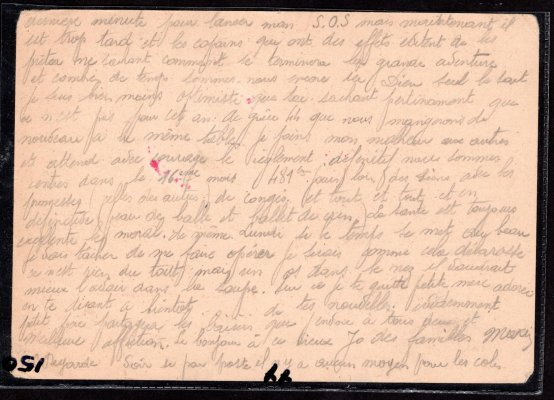 dernière minute pour lancer mon S.O.S mais maintenant il
est trop tard et les copains qui ont des effets évitent de les
prêter ne sachant comment se terminera la grande aventure
et combien de temps sommes nous encore là Dieu seul le sait
je suis bien moins optimiste que toi sachant pertinament que
ce n'est pas pour cet an de grâce 44 que nous mangerons de
nouveau à la même table je joins mon malheur aux autres
et attend avec courage le règlement définitif nous sommes
entrés dans le 16ème mois 481 jours loin des siens avec les
promesses (celles des autres) de congés et tout et tout et en
définitive peau de balle et ballet de crin la santé est toujours
excellente le moral de même Lundi si le temps se met au beau
je vais tâcher de me faire opérer je serais comme cela débarrassé
ce n'est rien du tout mais un os dans le nez il vaudrait
mieux l'avoir dans la soupe. Sur ce je te quitte petite mère adorée
en te disant à bientôt de tes nouvelles. évidemment
petit père partagera les baisers que j'envoie à tous deux et
meilleure affection. Le bonjour à ces vieux Jo des familles
Regarde Voir si par poste il n'y a aucun moyen pour les colis
150 99